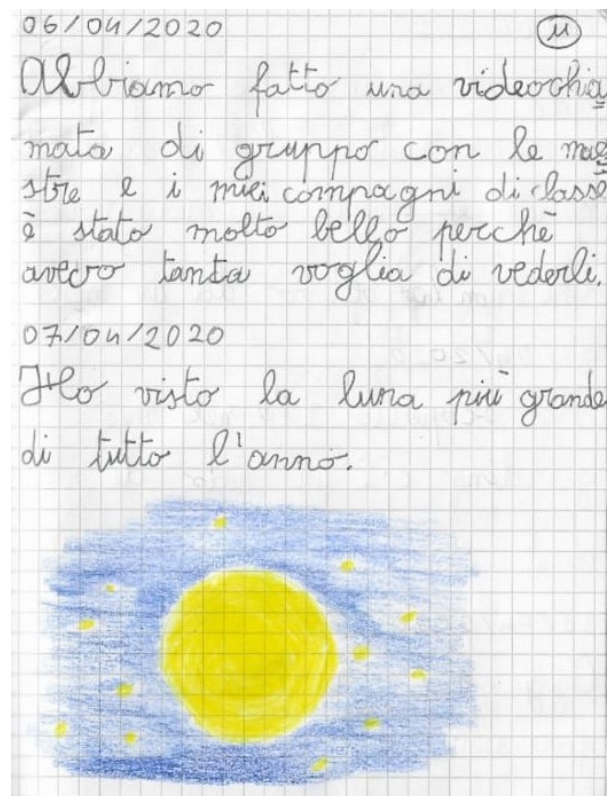 06/04/2020
11
Abbiamo fatto una videochia
mata di gruppo con le mae
stre e i miei compagni di classe
è stato molto bello perchè
avevo tanta voglia di vederli.
07/04/2020
Ho visto la luna più grande
di tutto l'anno.